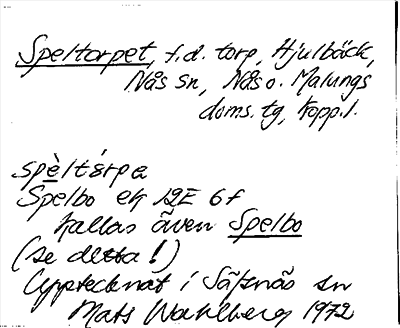 Speltorpet, f.d. torp, Hjulbäck,
Nås sn, Nås o. Malungs
doms.tg, Kopp.l.
spèltórpa
Spelbo ek 12E 6f
kallas även Spelbo
(se detta!)
Upptecknat i Säfsnäs sn
Mats Wahlberg 1972